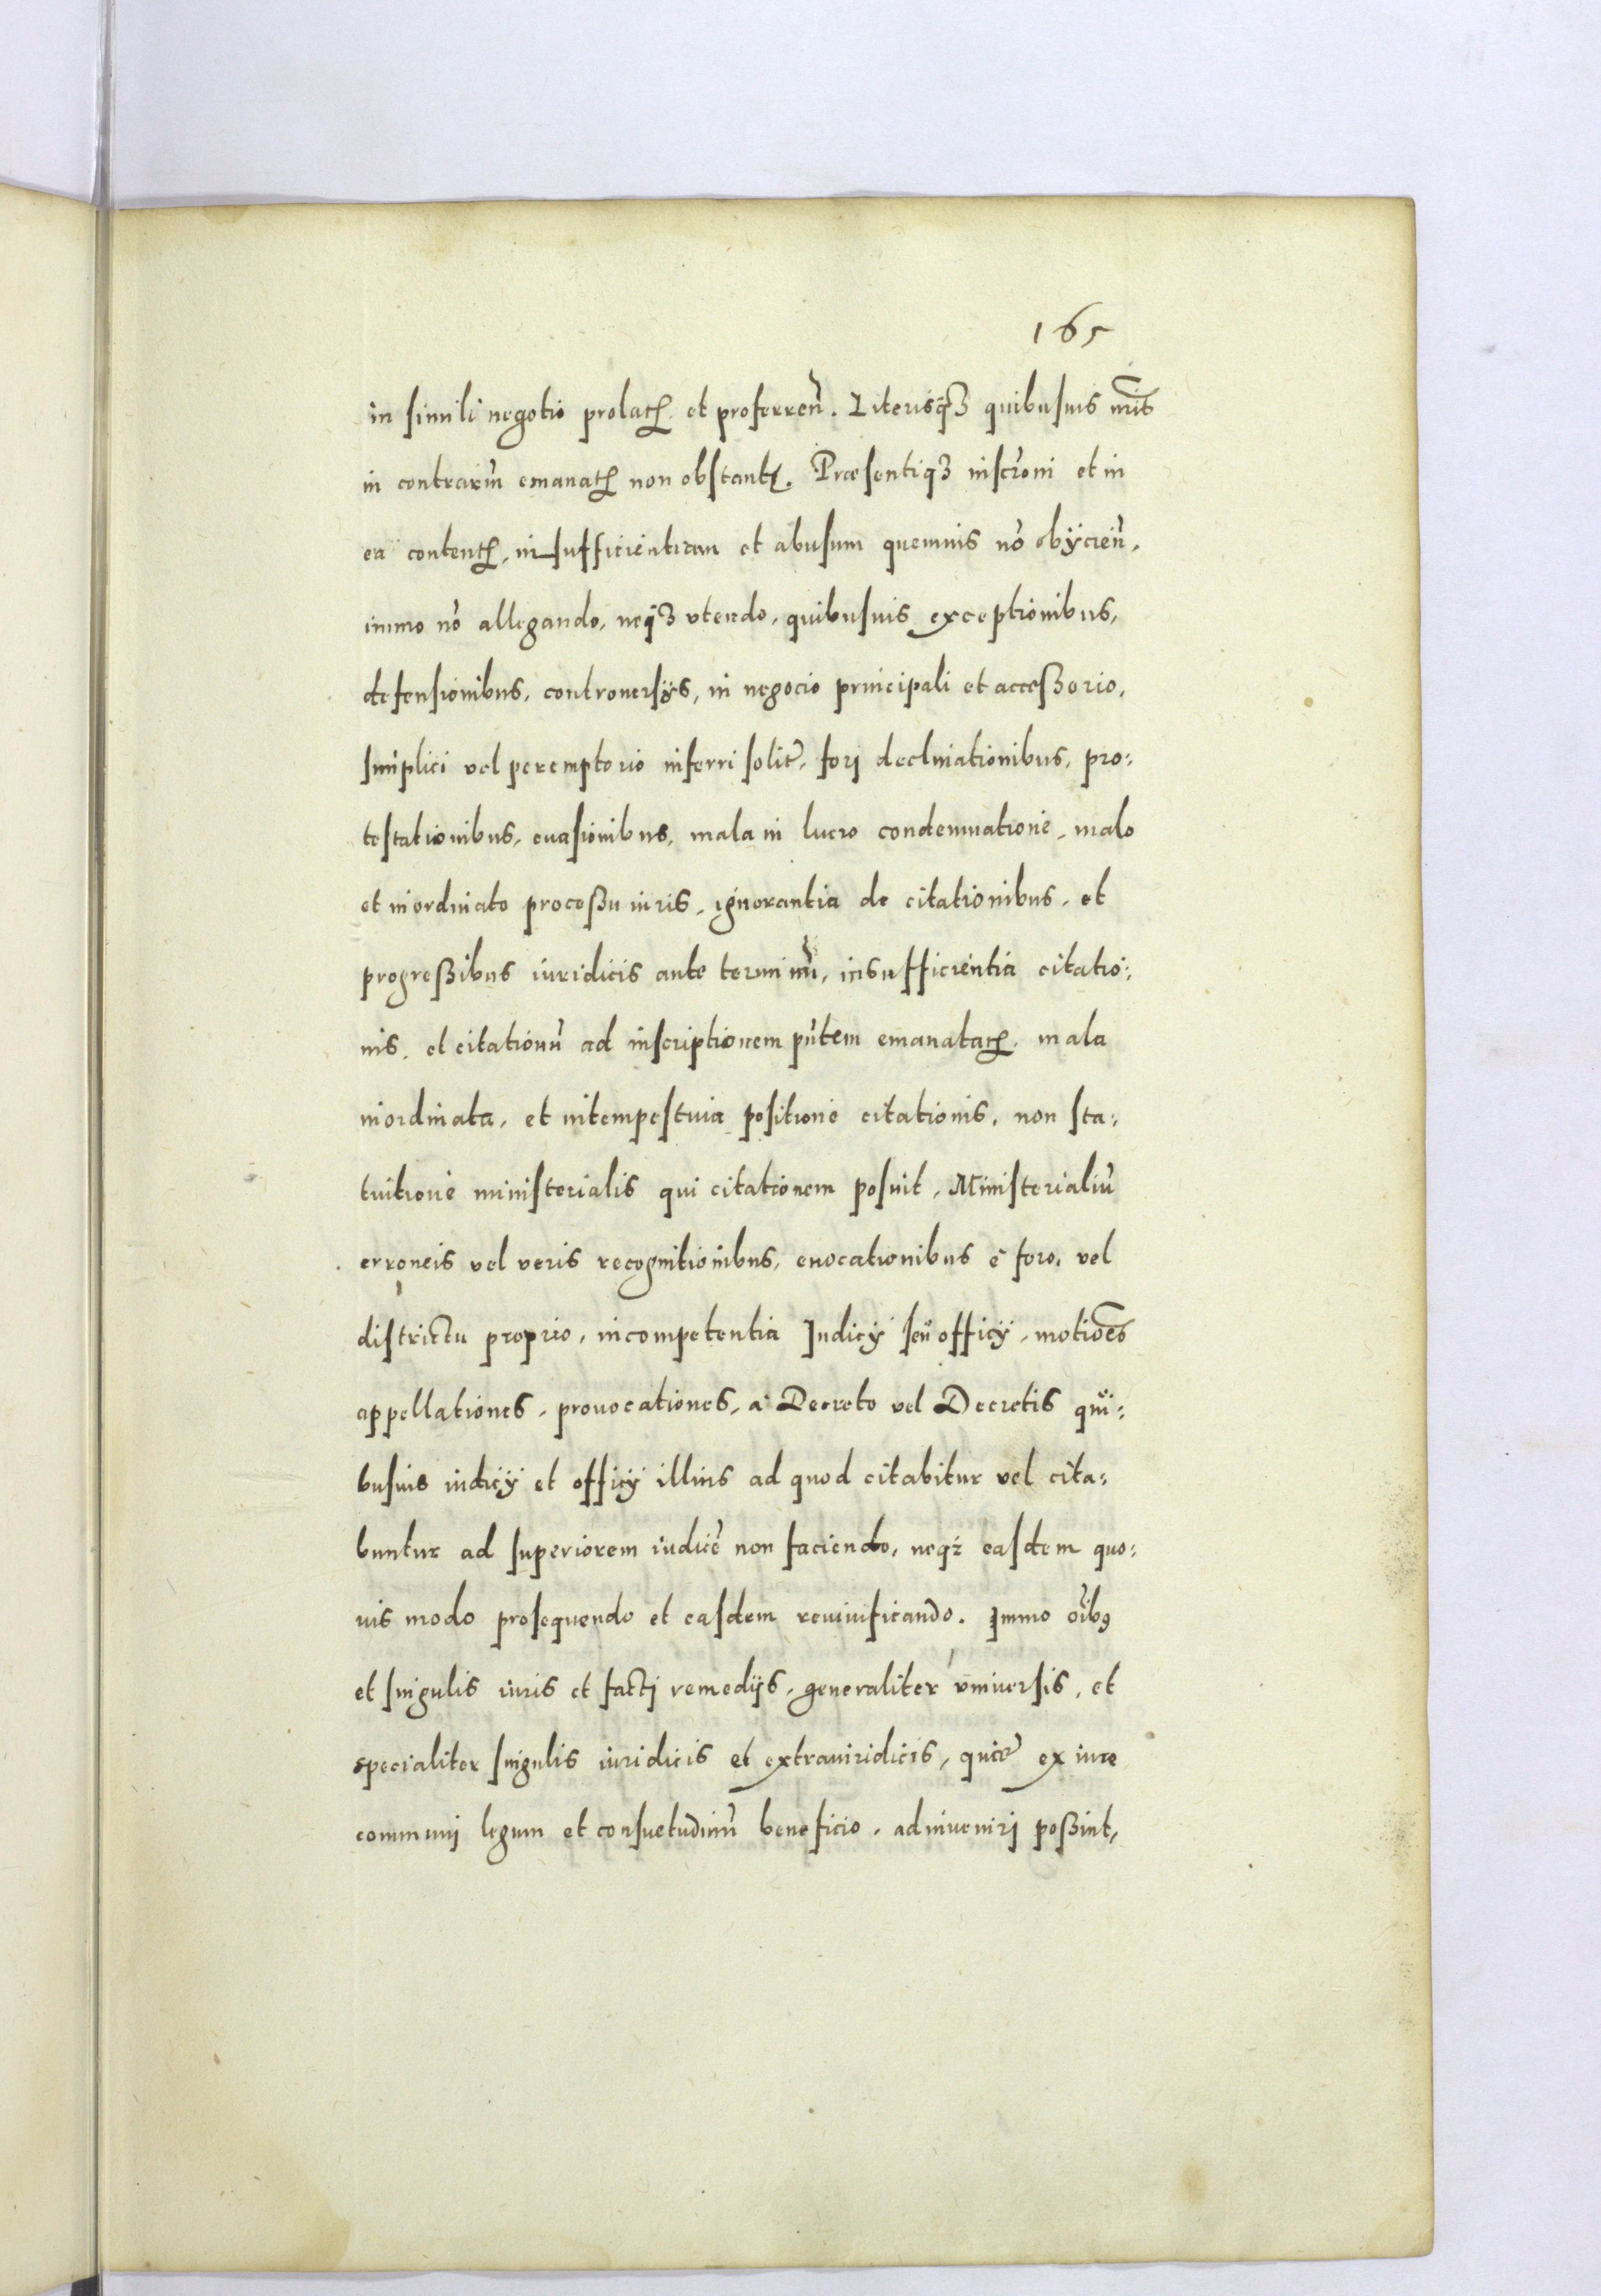 165
in simili negotio prolatꝝ et proferreñ. Literisq̃ꝫ quibusuis nr̃is
in contrariũ emanatꝝ non obstantꝭ. Præsentiqꝫ inscr̃oni et in
ea contentꝝ, insufficientiam et abusum quemuis nõ obÿcieñ,
immo nõ allegando, neqꝫ vtendo, quibusuis exceptionibus,
defensionibus, controuersÿs, in negocio principali et acceßorio,
simplici vel peremptorio inferri solit̃, forj declinationibus, pro:
testationibus, euasionibus, mala in lucro condemnatione, malo
et inordinato proceßu iuris, ignorantia de citationibus, et
progreßibus iuridicis ante terminũ, insufficientia citatio:
nis, et citationũ ad inscriptionem pñtem emanataꝝ, mala
inordinata, et intempestiuia positione citationis, non sta:
tuitione ministerialis qui citationem posuit, Ministerialiũ
erroneis vel veris recognitionibus, euocationibus è foro, vel
districtu proprio, incompetentia Judicÿ seu officÿ, motiões
appellationes, prouocationes, a Decreto vel Decretis qui:
busuis iudicÿ et officÿ illius ad quod citabitur vel cita:
buntur ad superiorem iudicẽ non faciendo, neqꝫ easdem quo:
uis modo prosequendo et easdem reuiuificando. Immo oĩbꝰ
et singulis iuris et factj remedijs, generaliter vniuersis, et
specialiter singulis iuridicis et extrauiridicis, quæ ex iure
communj legum et consuetudinũ beneficio, adinuenirj poßint,